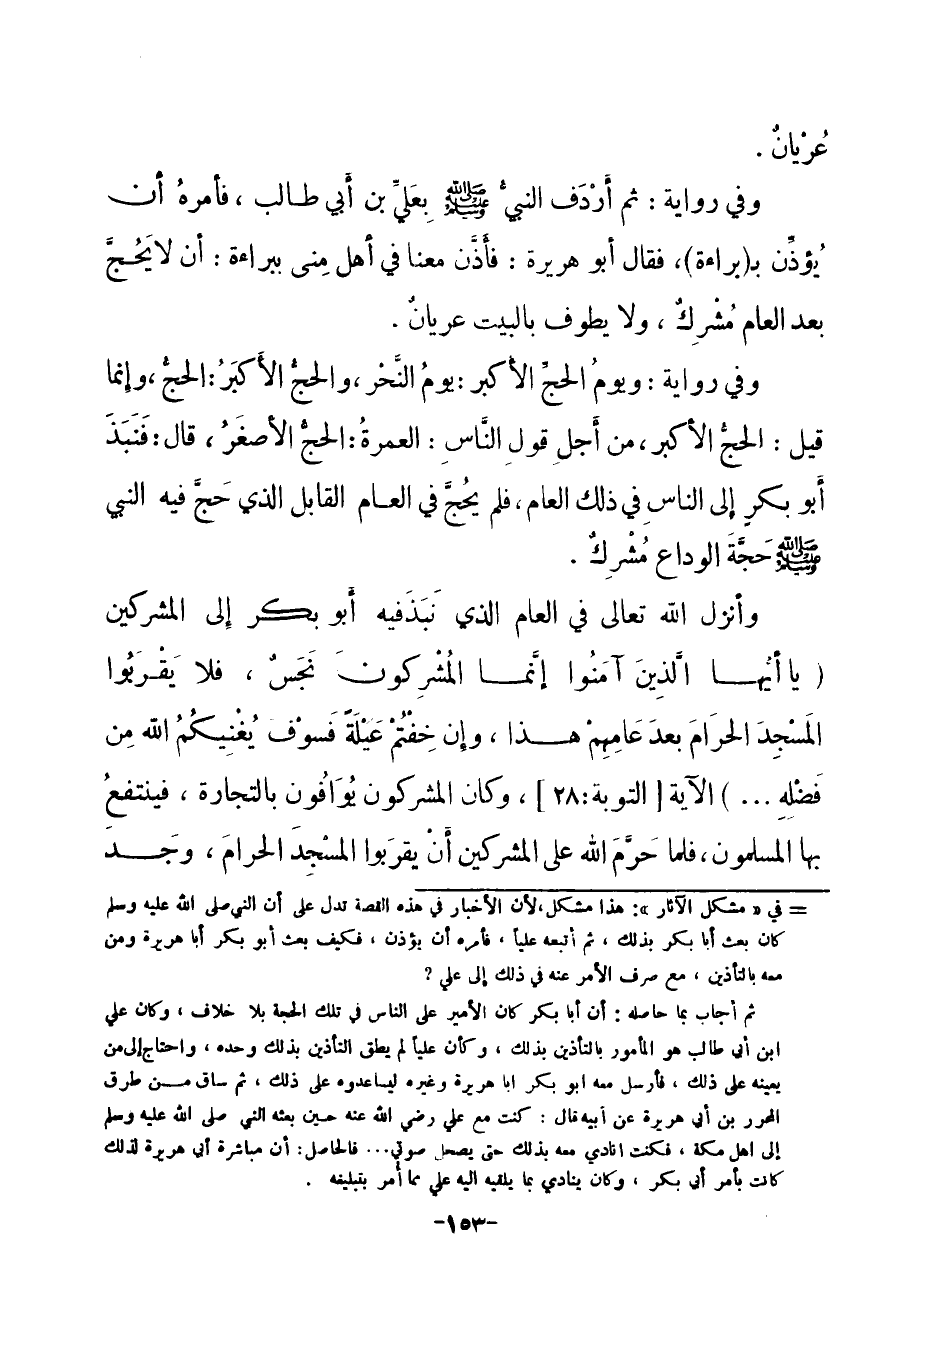 عُرْيانٌ .
وفي رواية : ثم أَرْدَف النبيُّ ﷺ بِعَليِّ بن أَبي طالب ، فأمرهُ أن
يُؤذِّن بـ(براءة)، فقال أبو هريرة : فأَذَّن معنا في أهل مِنى ببراءة : أن لا يَحُجَّ
بعد العام مُشْرِكٌ ، ولا يطوف بالبيت عريانٌ .
وفي رواية : ويومُ الحجِّ الأكبر : يومُ النَّحْر ، والحجُّ الأَكبَرُ : الحجُّ ، وإنما
قيل : الحجُّ الأكبر ، من أَجلِ قولِ النَّاسِ : العمرةُ : الحجُّ الأصغَرُ ، قال : فَنَبَذَ
أَبو بكرٍ إلى الناسِ في ذلك العام ، فلم يحُجَّ في العام القابل الذي حَجَّ فيه النبي
ﷺ حَجَّةَ الوداع مُشْرِكٌ .
وأنزل الله تعالى في العام الذي نَبَذَ فيه أَبو بكر إلى المشركين
( يا أَيُّها الَّذِينَ آمَنُوا إنَّما المُشْرِكونَ نَجَسٌ ، فلا يَقْرَبُوا
المَسْجِدَ الحرَامَ بعدَ عَامِهِمْ هذا ، وإن خِفْتُمْ عَيْلَةً فَسوْفَ يُغْنِيكُمُ الله مِن
فَضْلِهِ ... ) الآية [ التوبة : ٢٨ ] ، وكان المشركون يُوَافُون بالتجارة ، فينتفعُ
بها المسلمون ، فلما حَرَّمَ الله على المشركين أنْ يقرَبوا المسْجِدَ الحرامَ ، وَجَد
= في « مشكل الآثار » : هذا مشكل ، لأن الأخبار في هذه القصة تدل على أن النبي صلى الله عليه وسلم
كان بعث أبا بكر بذلك ، ثم أتبعه علياً ، فأمره أن يؤذن ، فكيف بعث أبو بكر أبا هريرة ومن
معه بالتأذين ، مع صرف الأمر عنه في ذلك إلى علي ؟
ثم أجاب بما حاصله : أن أبا بكر كان الأمير على الناس في تلك الحجة بلا خلاف ، وكان علي
ابن أبي طالب هو المأمور بالتأذين بذلك ، وكأن علياً لم يطق التأذين بذلك وحده ، واحتاج إلى من
يعينه على ذلك ، فأرسل معه ابو بكر ابا هريرة وغيره ليساعدوه على ذلك ، ثم ساق من طرق
المحرر بن أبي هريرة عن أبيه قال : كنت مع علي رضي الله عنه حين بعثه النبي صلى الله عليه وسلم
إلى اهل مكة ، فكنت انادي معه بذلك حتى يصحل صوتي ... فالحاصل : أن مباشرة أبي هريرة لذلك
كانت بأمر أبي بكر ، وكان ينادي بما يلقيه اليه علي مما أُمر بتبليغه .
-١٥٣-